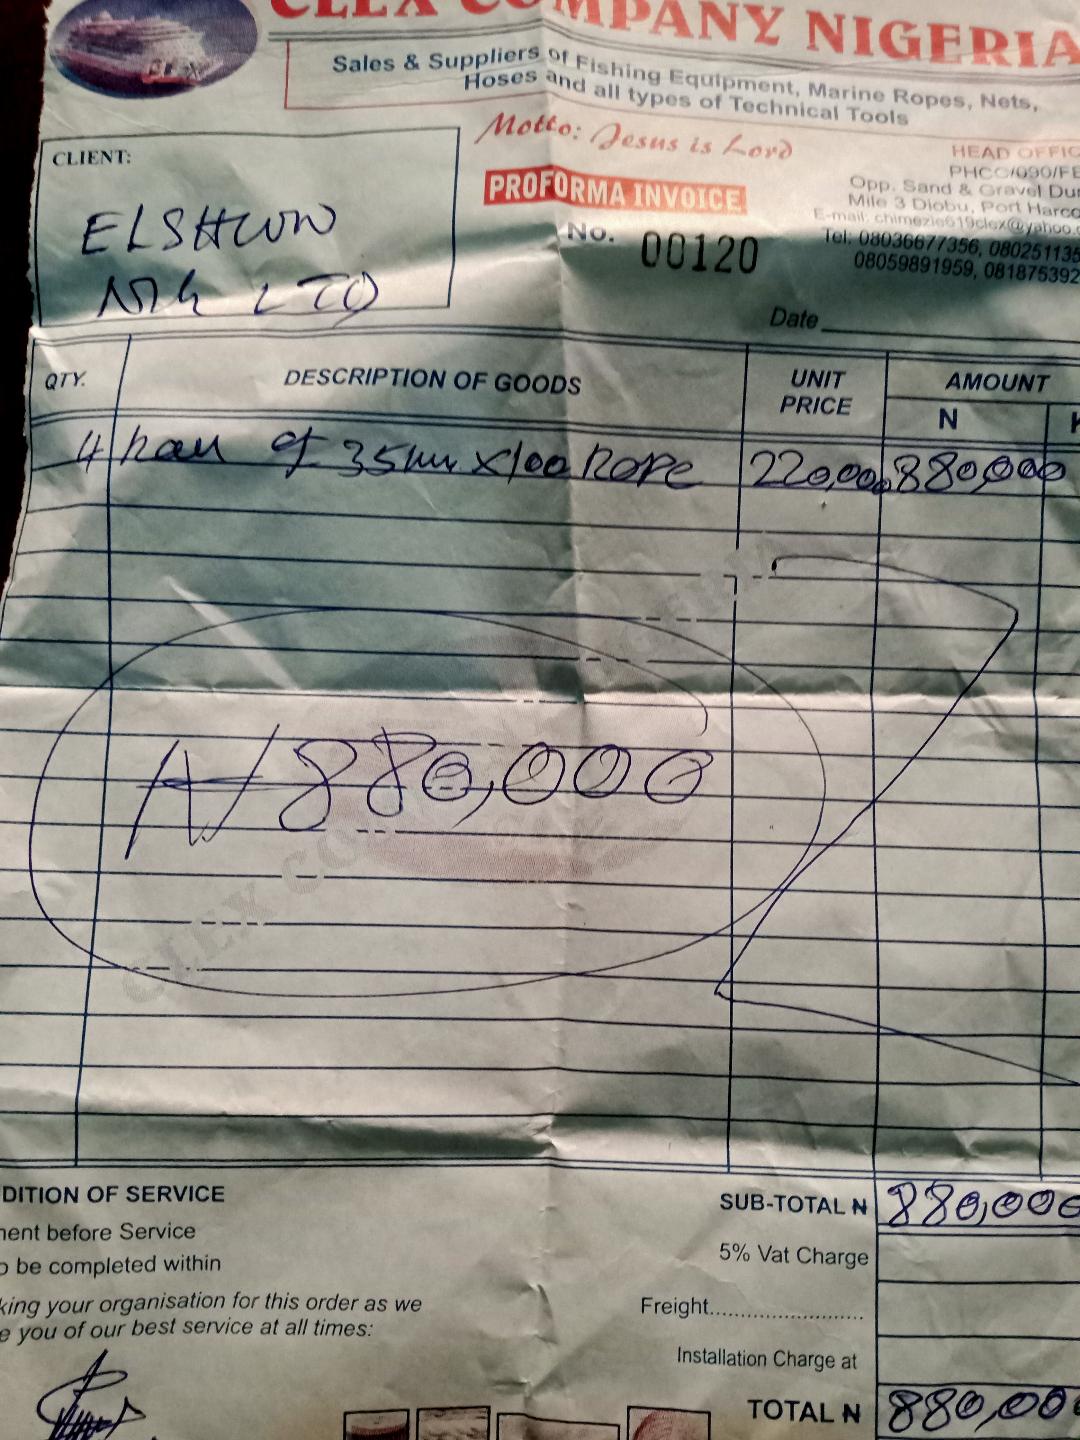 CLEX COMPANY NIGERIA
Sales & Suppliers of Fishing Equipment, Marine Ropes, Nets,
Hoses and all types of Technical Tools
Motto: Jesus is Lord
CLIENT:
ELSHWN
NIG LTD
PROFORMA INVOICE
No. 00120
HEAD OFFIC
PHCC/090/FE
Opp. Sand & Gravel Du
Mile 3 Diobu, Port Harco
E-mail: chimezie619clex@yahoo.c
Tel: 08036677356, 080251135
08059891959, 081875392
Date
QTY. DESCRIPTION OF GOODS UNIT PRICE AMOUNT
N
4 of 35mm x 100 Rope 220,000 880,000
₦880,000
CLEX CO
DITION OF SERVICE
ment before Service
o be completed within
king your organisation for this order as we
e you of our best service at all times:
SUB-TOTAL ₦ 880,000
5% Vat Charge
Freight..........................
Installation Charge at
TOTAL ₦ 880,000